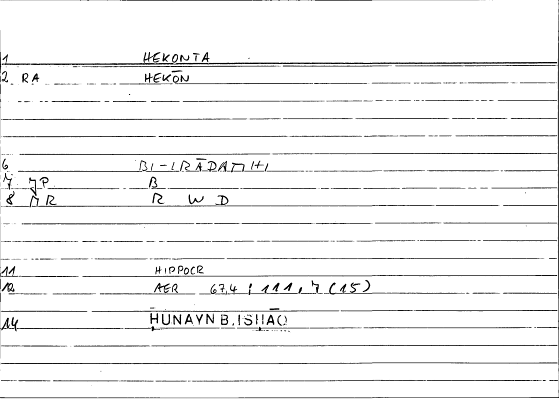 1 HEKONTA
2 RA HEKŌN
6 BI-IRĀDATIHI
7 JP B
8 AR R W D
11 HIPPOCR
12 AER 67,4 ; 111, 7 (15)
14 ḤUNAYN B. ISḤĀQ